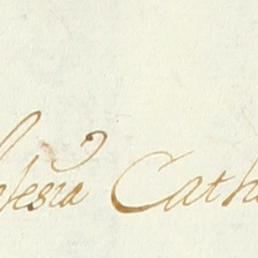 lesia Cath